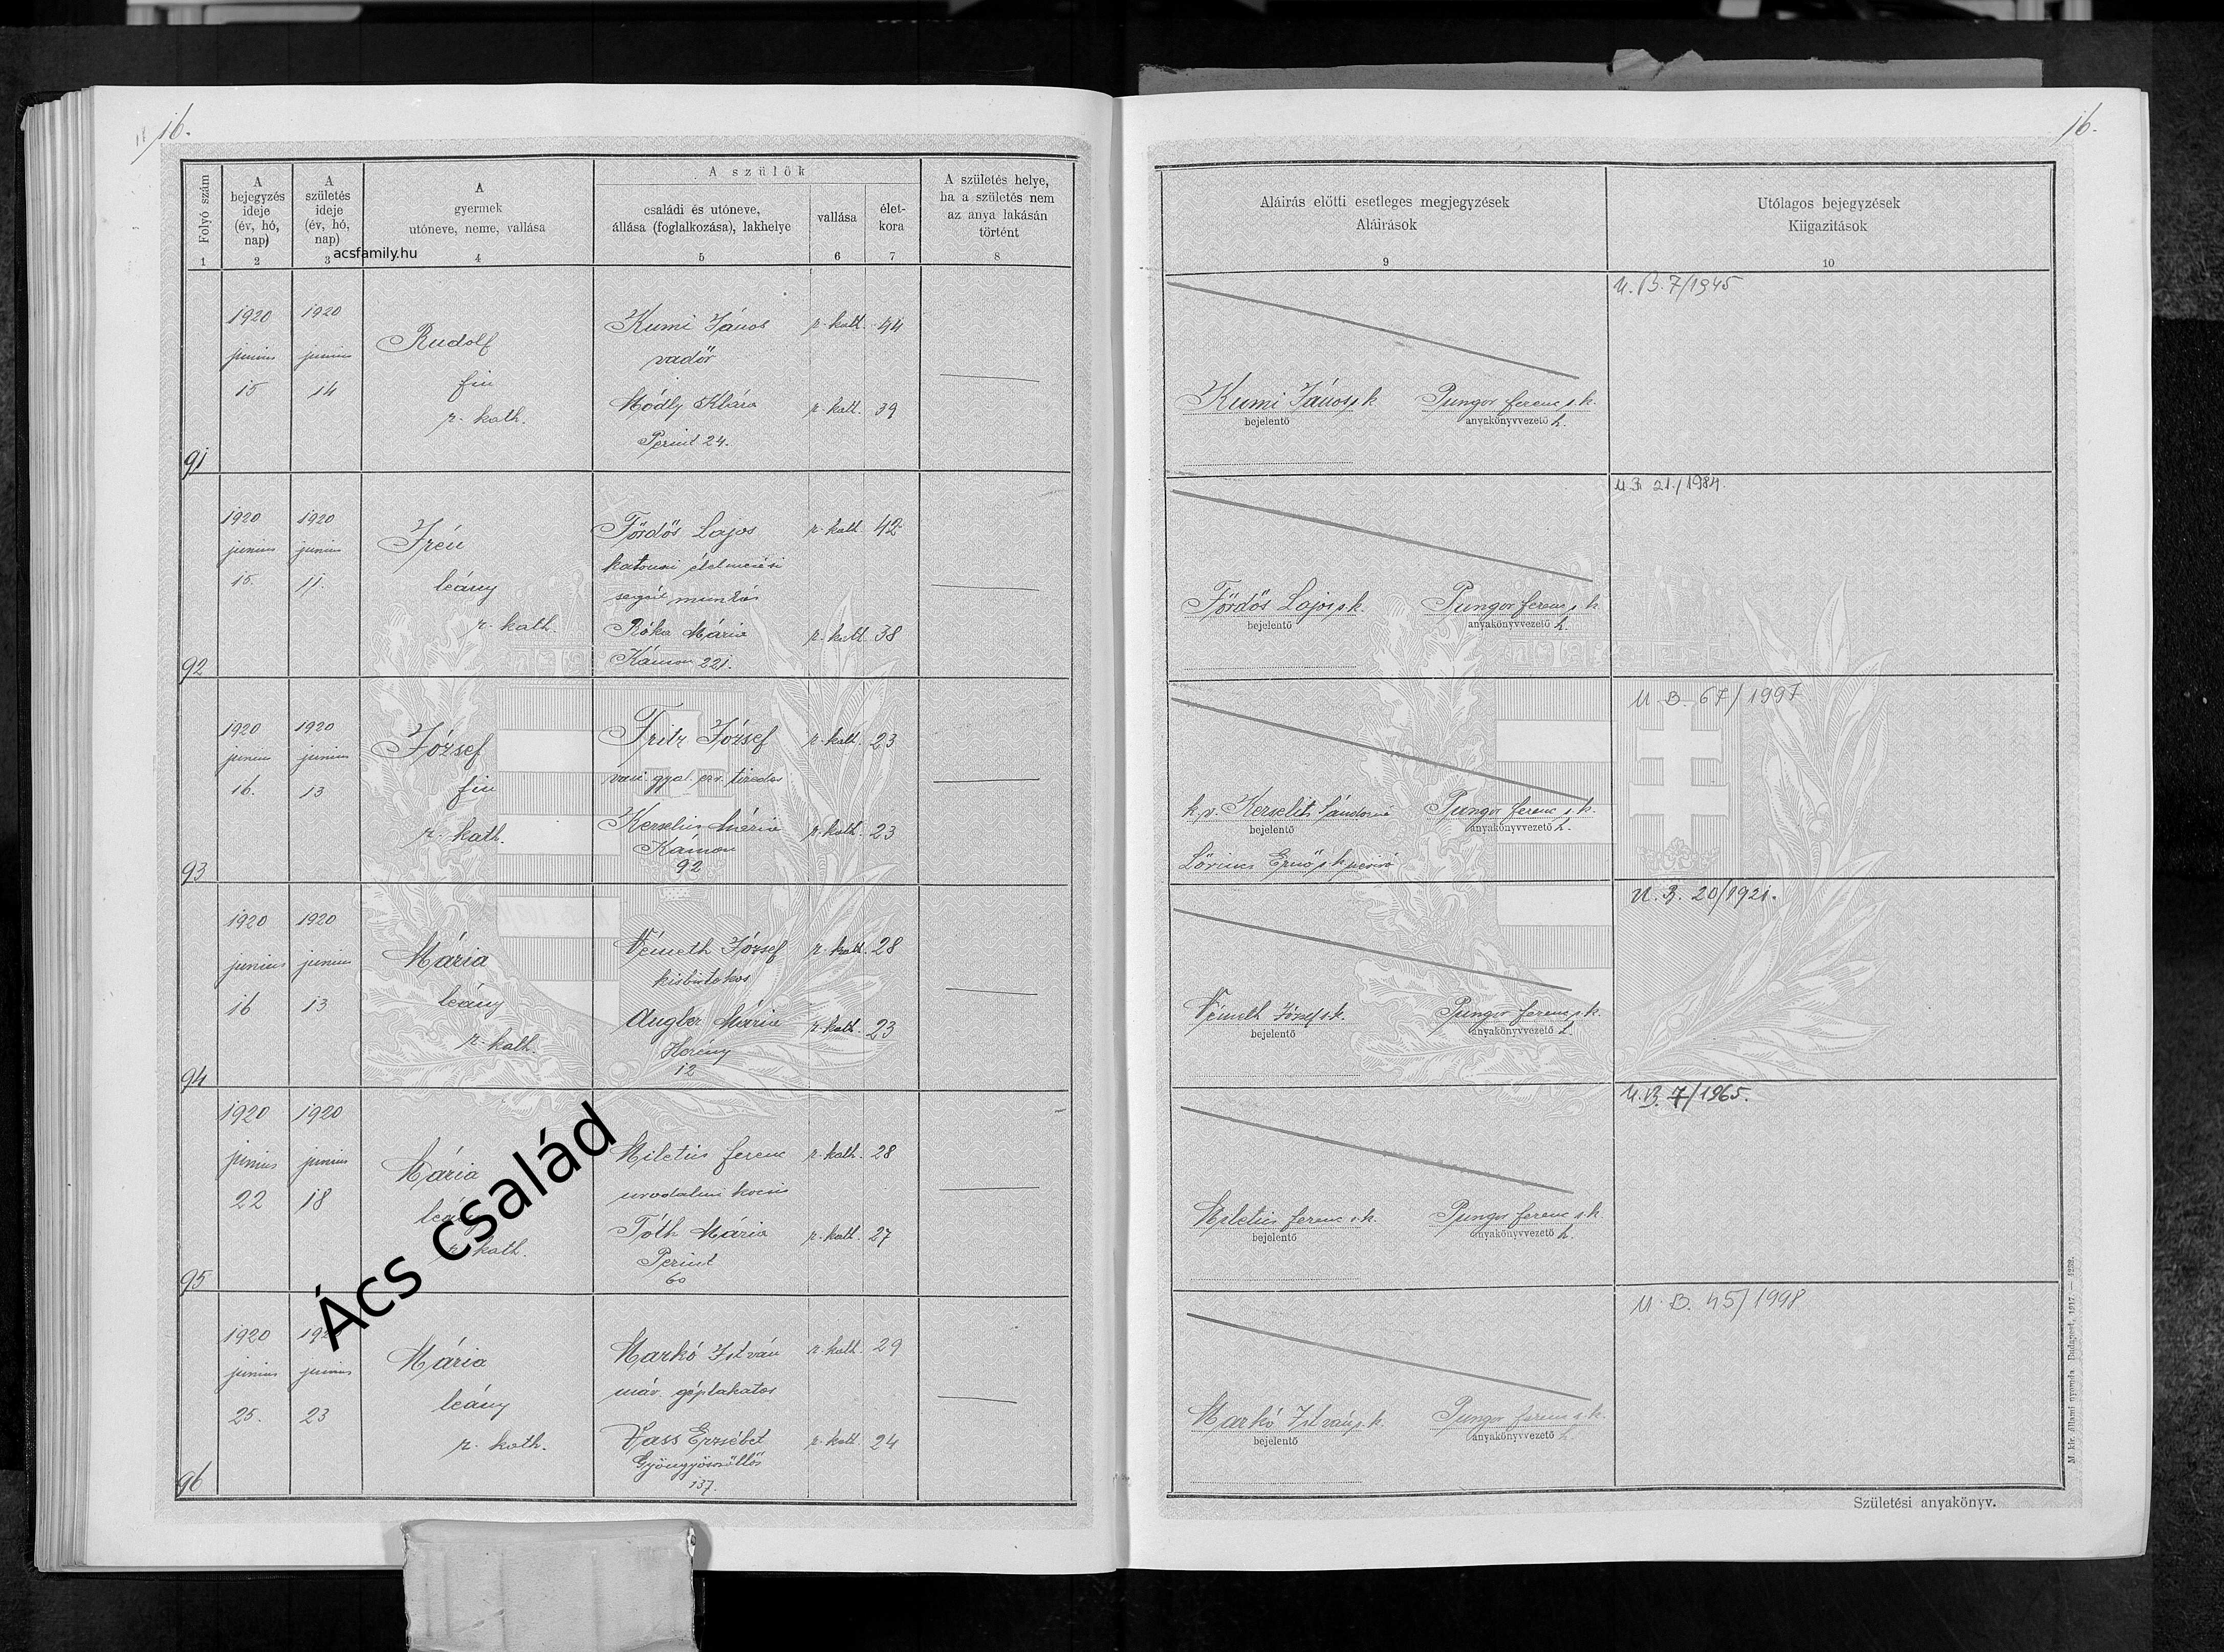 16.
Folyó szám
A bejegyzés ideje (év, hó, nap)
A születés ideje (év, hó, nap)
A gyermek utóneve, neme, vallása
A szülők
családi és utóneve, állása (foglalkozása), lakhelye
vallása
élet-kora
A születés helye, ha a születés nem az anya lakásán történt
1 2 3 4 5 6 7 8
acsfamily.hu
91
1920 junius 15
1920 junius 14
Rudolf
fiu
r. kath.
Kumi János r. kath. 44
vadőr
Módly Klára r. kath. 39
Perint 24.
92
1920 junius 15.
1920 junius 11.
Irén
leány
r. kath.
Fördős Lajos r. kath. 42
katonai élelmezési
segéd munkás
Róka Mária r. kath. 38
Kámon 221.
93
1920 junius 16.
1920 junius 13
József
fiu
r. kath.
Fritz József r. kath. 23
tizedes
Mária r. kath. 23
Kámon
92
94
1920 junius 16
1920 junius 13
Mária
leány
r. kath.
Németh József r. kath. 28
kisbirtokos
Angler Mária r. kath. 23
Herény
12
95
1920 junius 22
1920 junius 18
Mária
leány
r. kath.
Miletics Ferenc r. kath. 28
uradalmi kocsis
Tóth Mária r. kath. 27
Perint
60
96
1920 junius 25.
junius 23
Mária
leány
r. kath.
Markó István r. kath. 29
máv. géplakatos
Vass Erzsébet r. kath. 24
Gyöngyösszőllős
137.
Ács család
16.
Aláírás előtti esetleges megjegyzések
Aláírások
9
Utólagos bejegyzések
Kiigazítások
10
U. B. 7/1945
Kumi János s.k. Pungor Ferenc s.k.
bejelentő anyakönyvvezető h.
U B 21./1984.
Fördős Lajos s.k. Pungor Ferenc s.k.
bejelentő anyakönyvvezető h.
U. B. 67/1997
k.v. Kerselits Sándorné Pungor Ferenc s.k.
bejelentő anyakönyvvezető h.
Lőrincz Ernő s.k.
U. B. 20/1921.
Németh József s.k. Pungor Ferenc s.k.
bejelentő anyakönyvvezető h.
U. B. 7/1965.
Miletics Ferenc s.k. Pungor Ferenc s.k.
bejelentő anyakönyvvezető h.
U. B. 45/1998
Markó István s.k. Pungor Ferenc s.k.
bejelentő anyakönyvvezető h.
M. kir. állami nyomda. Budapest, 1917. — 4232.
Születési anyakönyv.